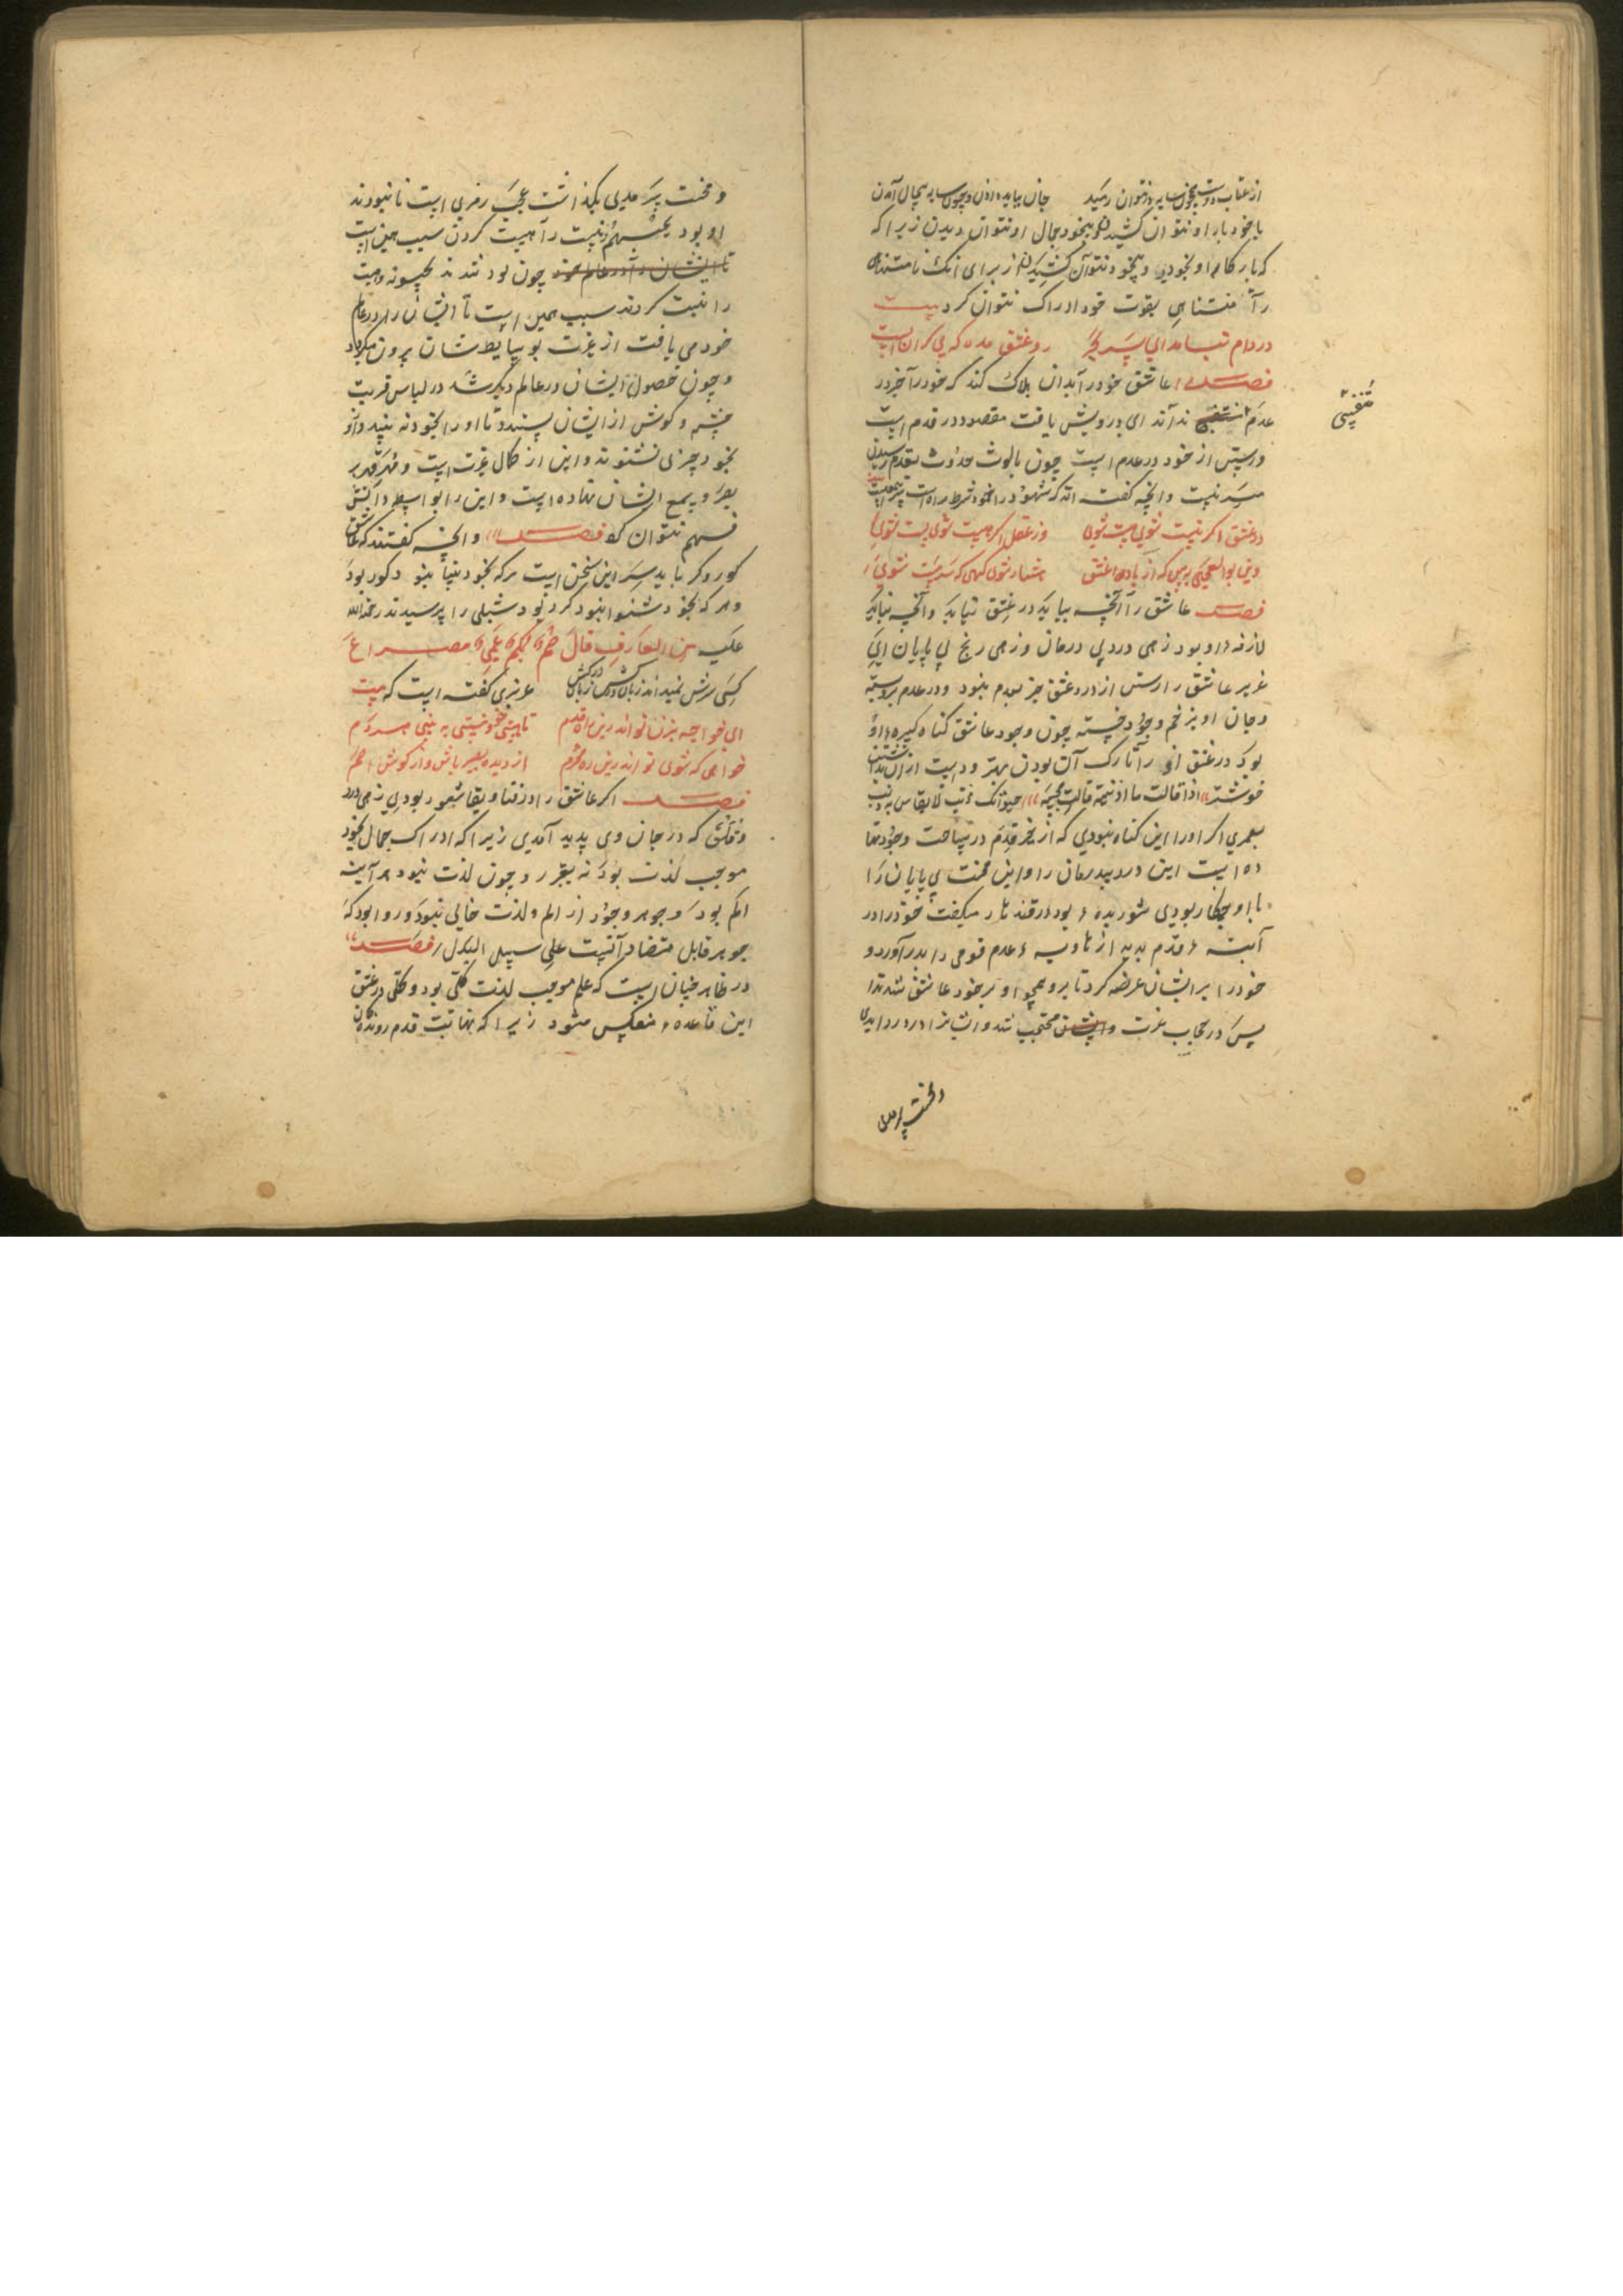 از عتاب دوست همچون سایه نتوان رمید جان بباید دادن و چون سایه بیجان آمدن
با خود بار او نتوان کشید و بیخود جمال او نتوان دیدن زیرا که
که بار کام او بخودی و بیخود نتوان کشید از برای آنک نامتناهی
را متناهی بقوت خود ادراک نتوان کرد بیت
در دام تو ای پسر رو عشق مده که بی کران است
فصل عاشق خود را بدان هلاک کند که خود را جز در
عدم نداند ای درویش یافت مقصود در قدم است
و رستن از خود در عدم است چون بالوث حدوث بقدم رسیدن
میسر نیست و آنچه گفته اند که شهود در
در عشق اگر نیست شوی هست شوی وز عقل اگر هست شوی پست شوی
وین بوالعجبی بین که از باده عشق هشیار شوی گهی که سرمست شوی
فصل عاشق را آنچه بباید در عشق نیاید و آنچه نباید
لازمه او بود زهی درد بی درمان و زهی رنج بی پایان ای
عزیز عاشق را رستن از درد عشق جز بعدم نبود و در عدم بر و بسته
و جان او بزخم وجود خسته چون وجود عاشق گناه کبیره او
بود در عشق او را تارک آن بودن بهتر
خوشتر اذا قالت ما اذنبت قالت مجیبة حیوتک ذنب لا یقاس به ذنب
بعمری اگر او را این گناه نبودی که از قدم در ساحت وجود نها
ده است این درد بیدرمان را و این محنت بی پایان را
با او چکار بودی شوریده بود در میگفت خود را در
آینه قدم بدید از هاویه عدم قومی را بدر آورد و
خود را بر ایشان عرضه کرد تا برو همچو او بر خود عاشق شدند
پس در حجاب عزت محتجب شد و ایشانرا در درد ابدی
و محنت سرمدی
و محنت سرمدی بگذاشت عجب رمزی است تا نبودند
او بود یحبهم نیست را هست کردن سبب همین است
چون بود شدند یحبونه هست
را نیست کردند سبب همین است تا ایشان را در عالم
خود می یافت از عزت بوسایط شان برون میکرد
و چون حصول ایشان در عالم دیگر شد در لباس قربت
چشم و گوش از ایشان بستد تا او را بخود نه بیند و از او
بخود چیزی نشنوند و این از کمال عزت است و مهر قهر بر
بصر و سمع ایشان نهاده است و این را بواسطه دانش
فهم نتوان کرد فصل و آنچه گفتند که عاشق
کور و کر باید سر این سخن است هرکه بخود بینا بود کور بود
و هر که بخود شنوا بود کر بود شبلی را پرسیدند رحمة الله
علیه من العارف قال صم بکم عمی مصراع
عزیزی گفته است که بیت
ای خواجه بزن تو اندرین راه قدم تا هستی خود نیستی به بینی هردم
خواهی که شوی تو اندرین ره محرم از دیده بصیر باش و از گوش اصم
فصل اگر عاشق را در فنا و بقا شعور بودی زهی درد
و قلق که در جان وی پدید آمدی زیرا که ادراک جمال بخود
موجب لذت بود نه بغیر و چون لذت نبود هر آینه
الم بود و جوهر وجود از الم و لذت خالی نبود و روا بود که
جوهر قابل متضادات نیست علی سبیل البدل فصل
در ظاهر چنان است که علم موجب لذت کلی بود و کلی در عشق
این قاعده منعکس شود زیرا که نهایت قدم روندگان